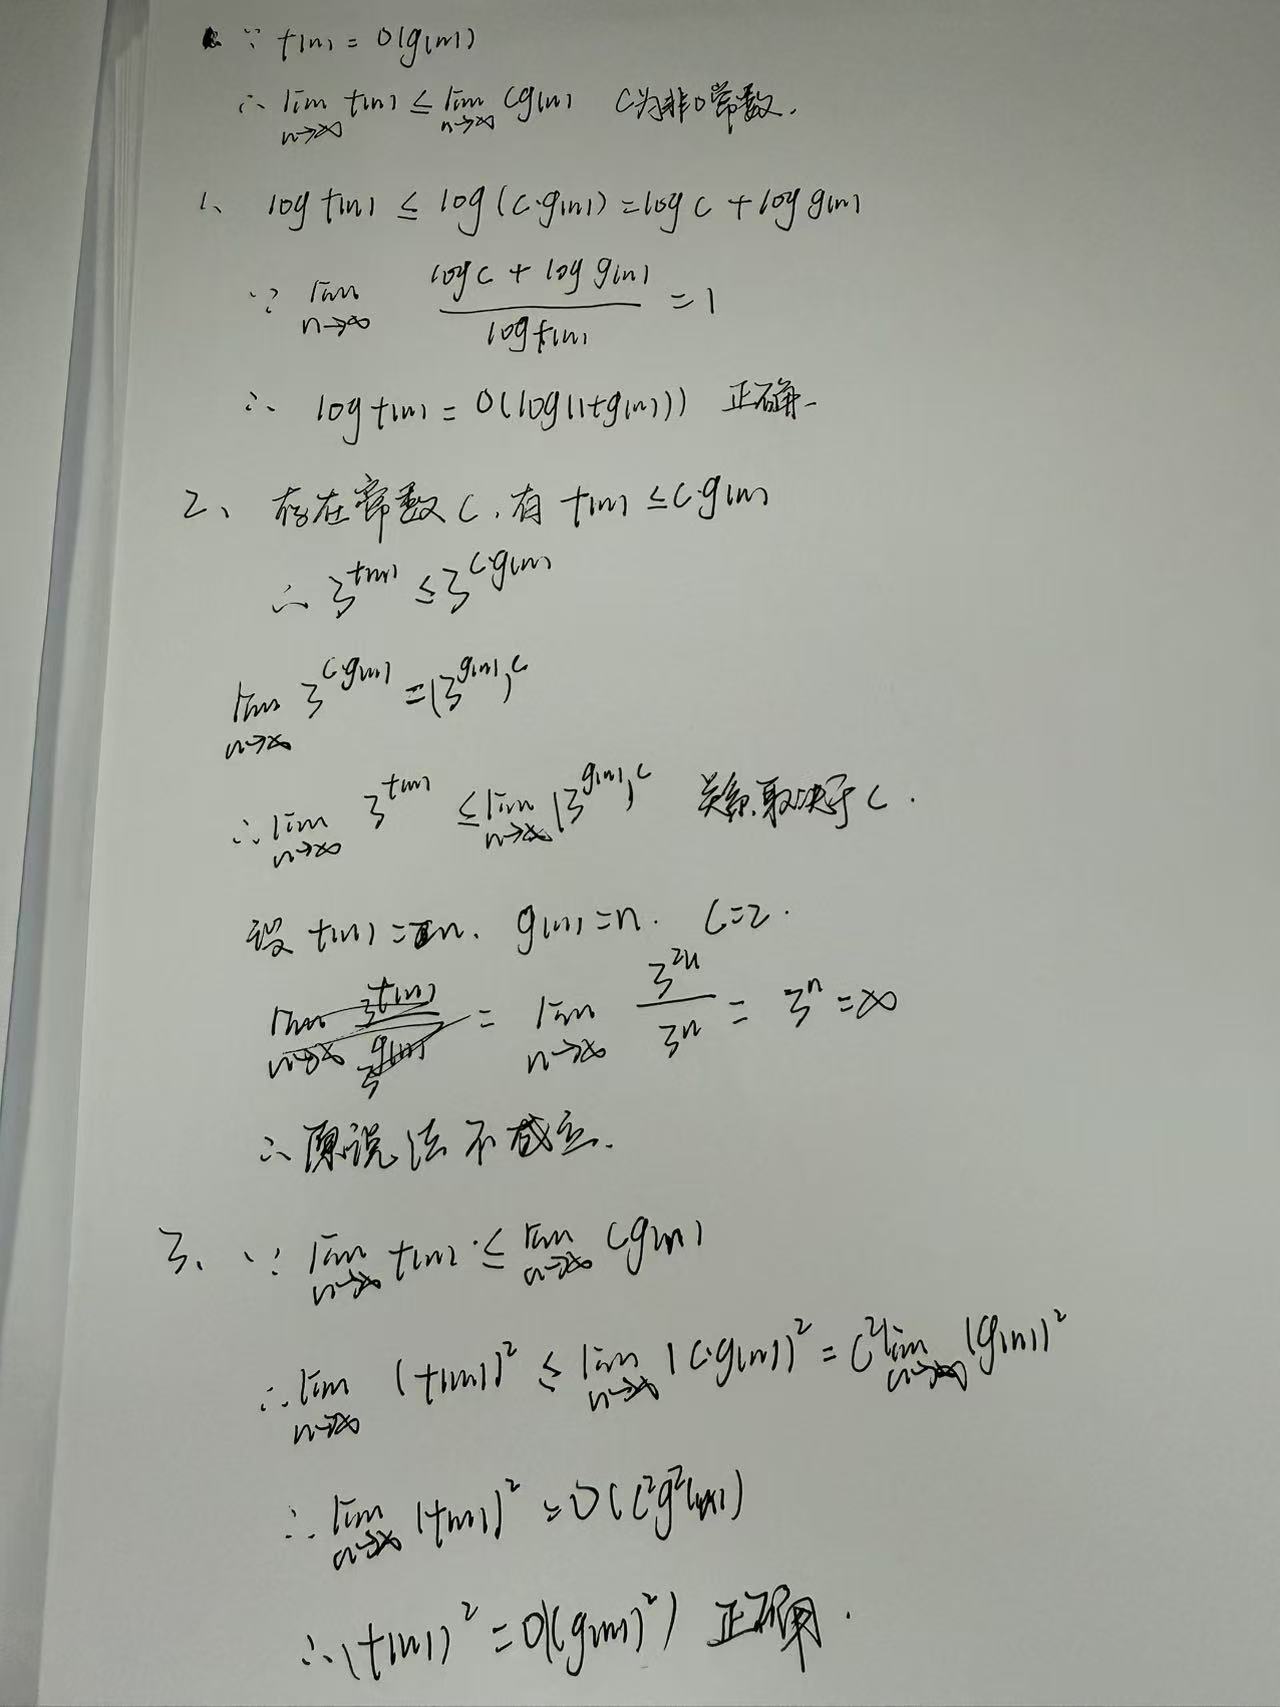 ∵ t(n) = O(g(n))
∴ lim n→∞ t(n) ≤ lim n→∞ Cg(n) C为非0常数.
1、 log t(n) ≤ log(C·g(n)) = log C + log g(n)
∵ lim n→∞ (log C + log g(n)) / log t(n) = 1
∴ log t(n) = O(log(1+g(n))) 正确.
2、 存在常数C, 有 t(n) ≤ C·g(n)
∴ 3^t(n) ≤ 3^C·g(n)
lim n→∞ 3^C·g(n) = (3^g(n))^C
∴ lim n→∞ 3^t(n) ≤ lim n→∞ (3^g(n))^C 关系取决于C.
设 t(n) = 2n. g(n) = n. C=2.
lim n→∞ 3^t(n) / 3^g(n) = lim n→∞ 3^2n / 3^n = 3^n = ∞
∴ 原说法不成立.
3、 ∵ lim n→∞ t(n) ≤ lim n→∞ Cg(n)
∴ lim n→∞ (t(n))² ≤ lim n→∞ (C·g(n))² = C² lim n→∞ (g(n))²
∴ lim n→∞ (t(n))² = O(C²g²(n))
∴ (t(n))² = O((g(n))²) 正确.